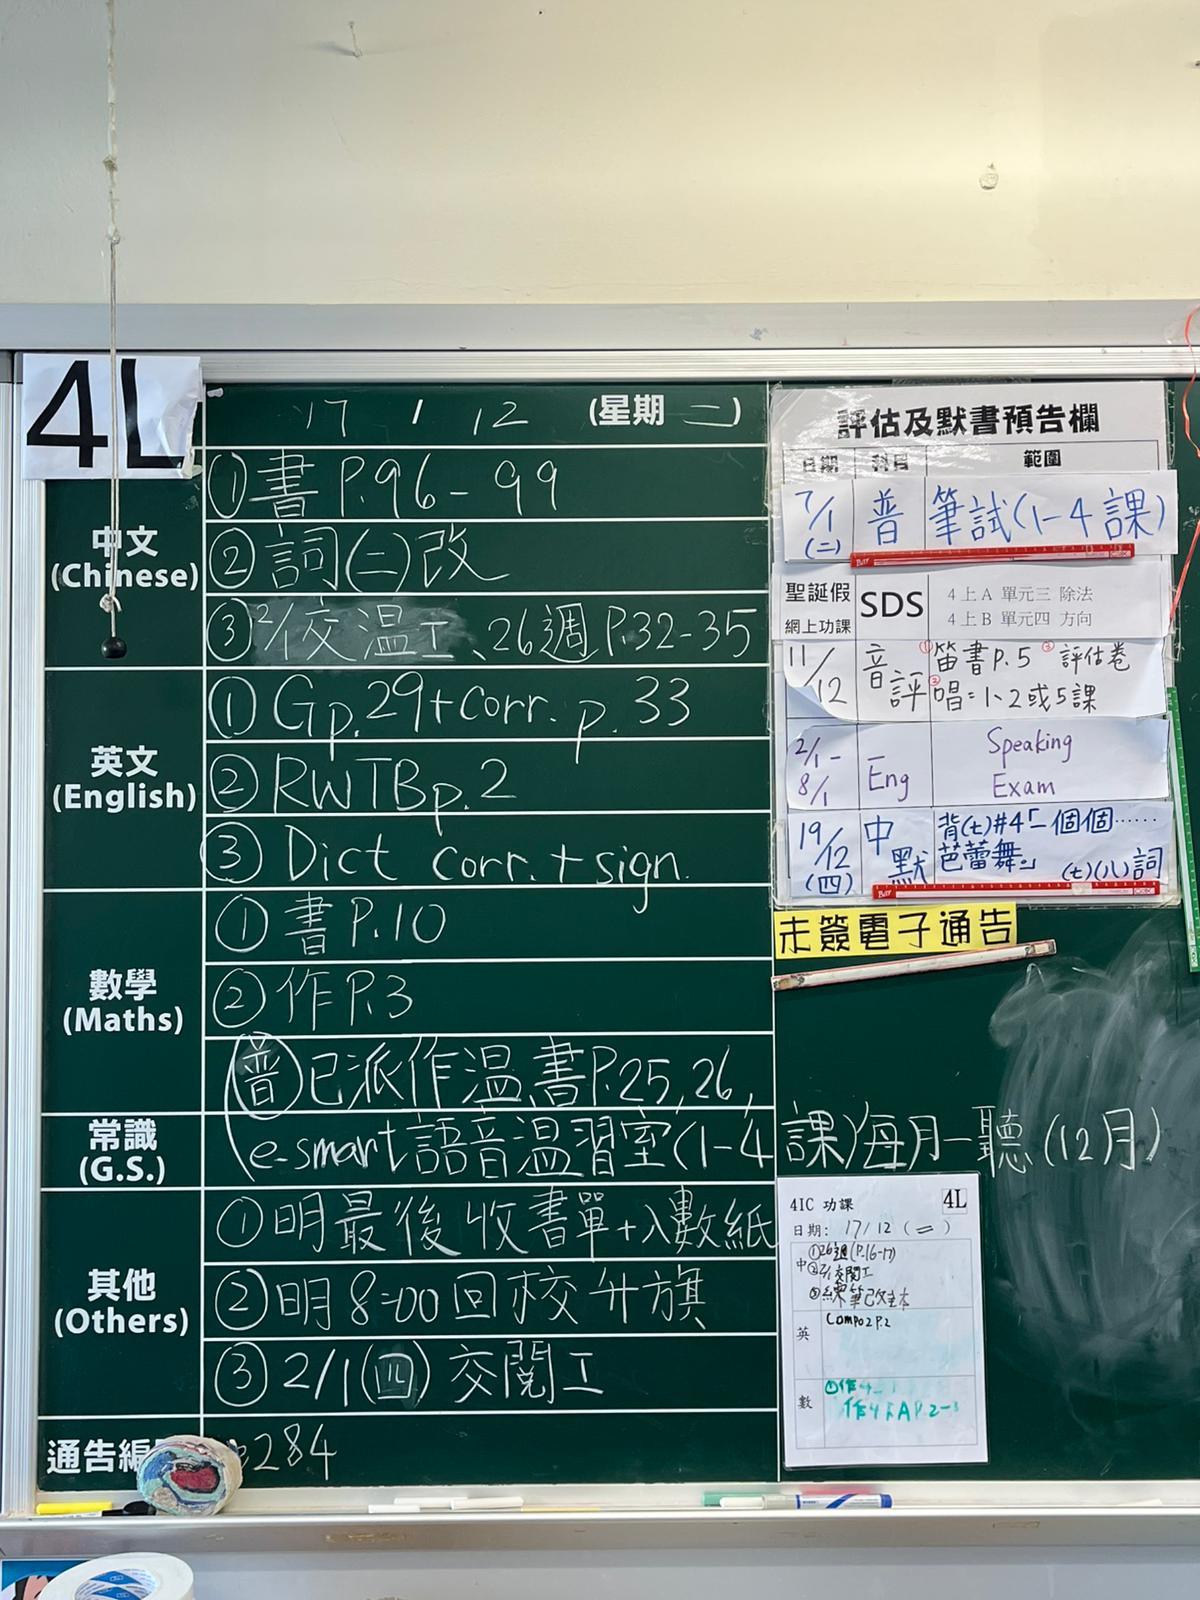 4L
17 / 12 (星期 二)
中文
(Chinese)
①書 P.96-99
②詞(二)改
③2/1交温工、26週 P.32-35
英文
(English)
①Gp.29+corr. p.33
②RWTBp.2
③Dict corr.+sign.
數學
(Maths)
①書 P.10
②作 P.3
普 已派作温,書P.25,26,
常識
(G.S.)
e-smart語音温習室(1-4課)每月一聽(12月)
其他
(Others)
①明最後收書單+入數紙
②明8:00回校升旗
③2/1(四)交閱工
通告編
e284
評估及默書預告欄
日期 科目 範圍
7/1(二) 普 筆試(1-4課)
聖誕假
網上功課
SDS
4上A 單元三 除法
4上B 單元四 方向
11/12 音評 ①笛書P.5 ③評估卷
②唱=1、2或5課
2/1-8/1 Eng Speaking
Exam
19/12(四) 中默 背(七)#4「一個個……
芭蕾舞。」
(七)(八)詞
未簽電子通告
4IC 功課 4L
日期: 17/12 (二)
中 ①26週(P.16-17)
②2/1交閱工
③練筆改主本
英 Compo2P.2
數